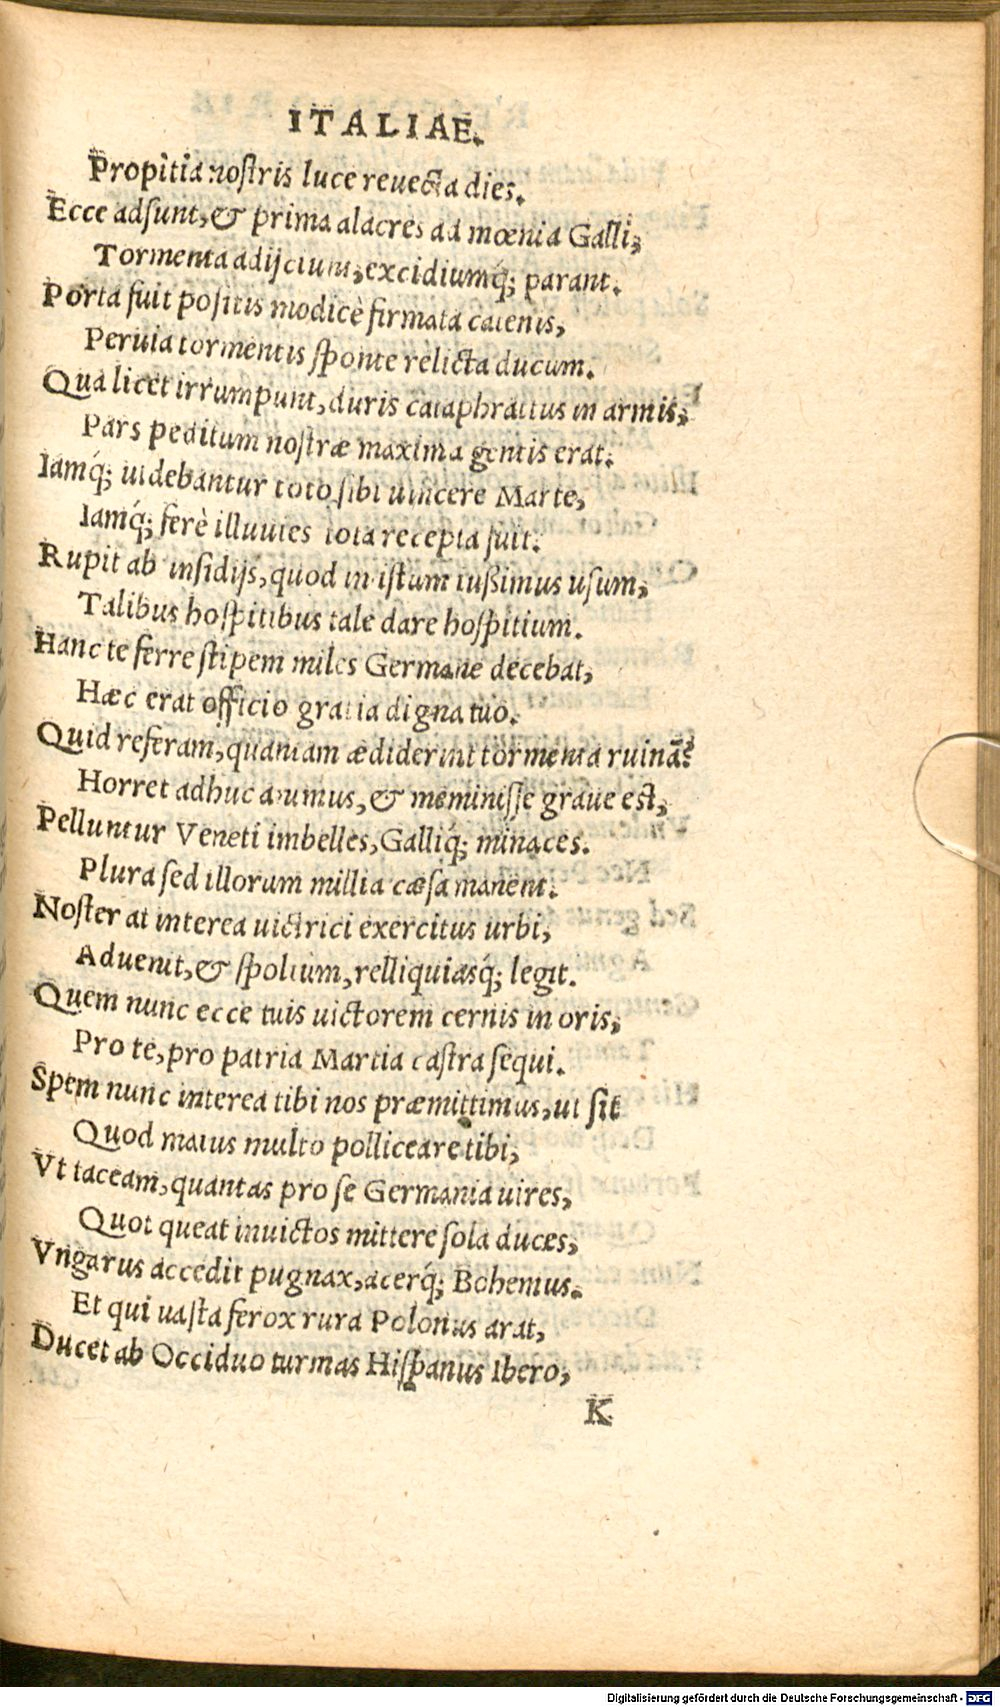 ITALIAE.
Propitia nostris luce reuecta dies.
Ecce adsunt, & prima alacres ad mœnia Galli,
Tormenta adijciunt, excidiumq́; parant.
Porta fuit positis modicè firmata catenis,
Peruia tormentis sponte relicta ducum.
Qua licet irrumpunt, duris cataphractus in armis,
Pars peditum nostræ maxima gentis erat.
Iamq́; uidebantur toto sibi uincere Marte,
Iamq́; ferè illuuies tota recepta fuit.
Rupit ab insidijs, quod in istum iußimus usum,
Talibus hospitibus tale dare hospitium.
Hanc te ferre stipem miles Germane decebat,
Hæc erat officio gratia digna tuo.
Quid referam, quantam ædiderint tormenta ruinã?
Horret adhuc animus, & meminisse graue est,
Pelluntur Veneti imbelles, Galliq́; minaces.
Plura sed illorum millia cæsa manent.
Noster at interea uictrici exercitus urbi,
Aduenit, & spolium, relliquiasq́; legit.
Quem nunc ecce tuis uictorem cernis in oris,
Pro te, pro patria Martia castra sequi.
Spem nunc interea tibi nos præmittimus, ut sit
Quod maius multo polliceare tibi,
Vt taceam, quantas pro se Germania uires,
Quot queat inuictos mittere sola duces,
Vngarus accedit pugnax, acerq́; Bohemus.
Et qui uasta ferox rura Polonus arat,
Ducet ab Occiduo turmas Hispanus Ibero,
K
Digitalisierung gefördert durch die Deutsche Forschungsgemeinschaft - DFG